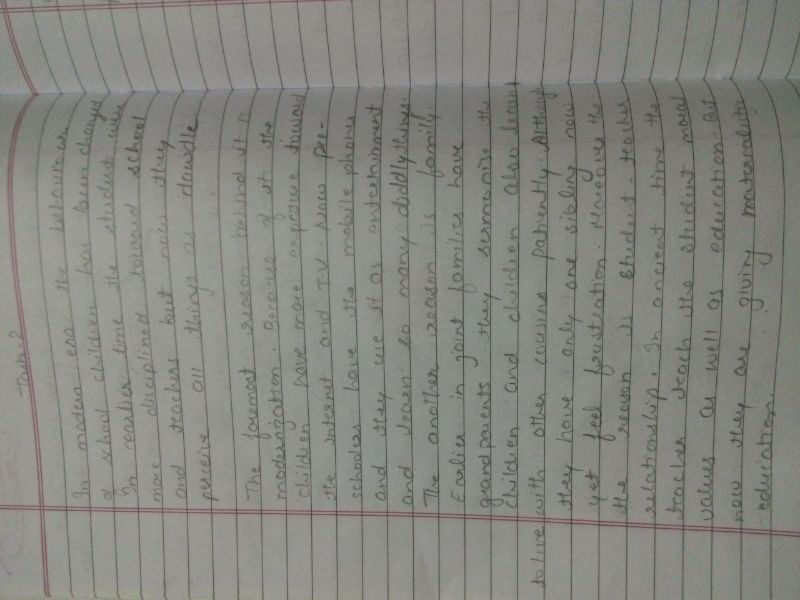 Task-2
In modern era the behaviour
of school children has been changed
In earlier time the student were
more disciplined toward school
and teachers but now they
perceive all things as dawdle.
The foremost reason behind it is
modernization. Because of it the
children have more exposure toward
the internet and TV. Now pre-
schoolers have the mobile phones
and they use it as entertainment
and learn so many diddly things.
The another reason is family.
Earlier in joint families have
grandparents they sermonize the
Children and children also learn
to live with other cousins patiently. Although
they have only one sibling now
yet feel frustration. Moreover the
the reason is student-teacher
relationship. In ancient time the
teacher teach the student moral
values as well as education. But
now they are giving materialistic
education.